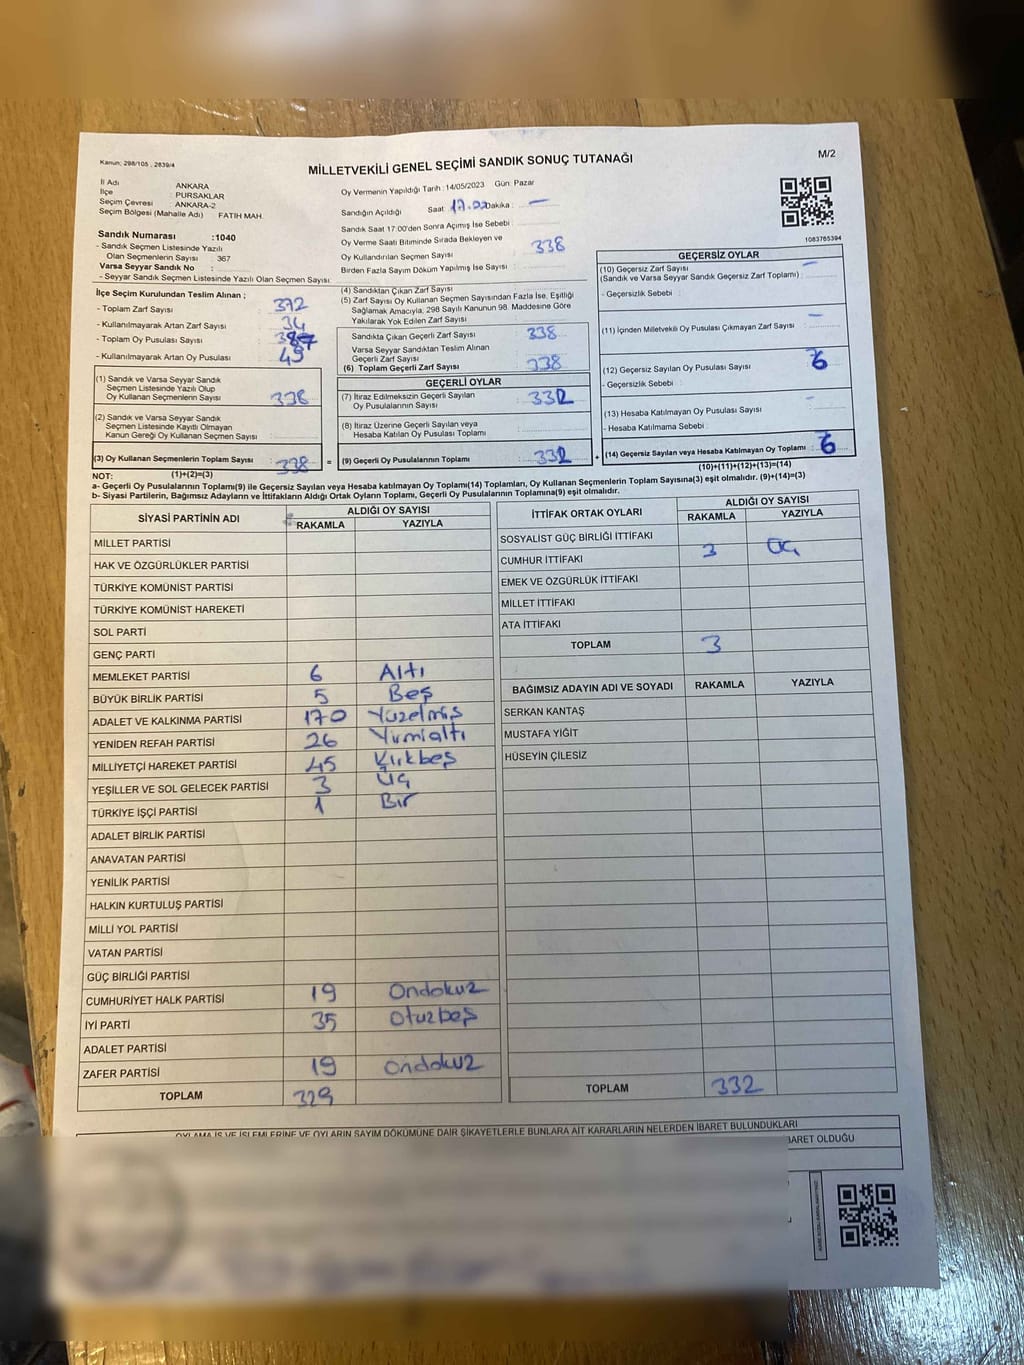 Kanun; 298/105 , 2839/4
MİLLETVEKİLİ GENEL SEÇİMİ SANDIK SONUÇ TUTANAĞI
M/2
İl Adı : ANKARA
İlçe : PURSAKLAR
Seçim Çevresi : ANKARA-2
Seçim Bölgesi (Mahalle Adı) FATİH MAH.
Sandık Numarası :1040
- Sandık Seçmen Listesinde Yazılı
Olan Seçmenlerin Sayısı : 367
Varsa Seyyar Sandık No :
- Seyyar Sandık Seçmen Listesinde Yazılı Olan Seçmen Sayısı:
Oy Vermenin Yapıldığı Tarih : 14/05/2023 Gün: Pazar
Sandığın Açıldığı Saat 17.00 Dakika : —
Sandık Saat 17:00'den Sonra Açımış İse Sebebi :
Oy Verme Saati Bitiminde Sırada Bekleyen ve
Oy Kullandırılan Seçmen Sayısı : 338
Birden Fazla Sayım Döküm Yapılmış İse Sayısı :
1083765394
İlçe Seçim Kurulundan Teslim Alınan ;
- Toplam Zarf Sayısı : 372
- Kullanılmayarak Artan Zarf Sayısı : 34
- Toplam Oy Pusulası Sayısı : 387
- Kullanılmayarak Artan Oy Pusulası : 49
(1) Sandık ve Varsa Seyyar Sandık
Seçmen Listesinde Yazılı Olup
Oy Kullanan Seçmenlerin Sayısı : 338
(2) Sandık ve Varsa Seyyar Sandık
Seçmen Listesinde Kayıtlı Olmayan
Kanun Gereği Oy Kullanan Seçmen Sayısı :
(3) Oy Kullanan Seçmenlerin Toplam Sayısı : 338
(1)+(2)=(3)
(4) Sandıktan Çıkan Zarf Sayısı :
(5) Zarf Sayısı Oy Kullanan Seçmen Sayısından Fazla İse, Eşitliği
Sağlamak Amacıyla, 298 Sayılı Kanunun 98. Maddesine Göre
Yakılarak Yok Edilen Zarf Sayısı :
Sandıkta Çıkan Geçerli Zarf Sayısı : 338
Varsa Seyyar Sandıktan Teslim Alınan
Geçerli Zarf Sayısı :
(6) Toplam Geçerli Zarf Sayısı : 338
GEÇERLİ OYLAR
(7) İtiraz Edilmeksizin Geçerli Sayılan
Oy Pusulalarının Sayısı : 332
(8) İtiraz Üzerine Geçerli Sayılan veya
Hesaba Katılan Oy Pusulası Toplamı :
= (9) Geçerli Oy Pusulalarının Toplamı : 332 +
GEÇERSİZ OYLAR
(10) Geçersiz Zarf Sayısı —
(Sandık ve Varsa Seyyar Sandık Geçersiz Zarf Toplamı) :
- Geçersizlik Sebebi :
(11) İçinden Milletvekili Oy Pusulası Çıkmayan Zarf Sayısı : —
(12) Geçersiz Sayılan Oy Pusulası Sayısı : 6
- Geçersizlik Sebebi :
(13) Hesaba Katılmayan Oy Pusulası Sayısı : -
- Hesaba Katılmama Sebebi :
(14) Geçersiz Sayılan veya Hesaba Katılmayan Oy Toplamı : 6
(10)+(11)+(12)+(13)=(14)
NOT:
a- Geçerli Oy Pusulalarının Toplamı(9) ile Geçersiz Sayılan veya Hesaba katılmayan Oy Toplamı(14) Toplamları, Oy Kullanan Seçmenlerin Toplam Sayısına(3) eşit olmalıdır. (9)+(14)=(3)
b- Siyasi Partilerin, Bağımsız Adayların ve İttifakların Aldığı Ortak Oyların Toplamı, Geçerli Oy Pusulalarının Toplamına(9) eşit olmalıdır.
SİYASİ PARTİNİN ADI
ALDIĞI OY SAYISI
RAKAMLA YAZIYLA
MİLLET PARTİSİ
HAK VE ÖZGÜRLÜKLER PARTİSİ
TÜRKİYE KOMÜNİST PARTİSİ
TÜRKİYE KOMÜNİST HAREKETİ
SOL PARTİ
GENÇ PARTİ
MEMLEKET PARTİSİ 6 Altı
BÜYÜK BİRLİK PARTİSİ 5 Beş
ADALET VE KALKINMA PARTİSİ 170 Yüzelmiş
YENİDEN REFAH PARTİSİ 26 Yirmialtı
MİLLİYETÇİ HAREKET PARTİSİ 45 Kırkbeş
YEŞİLLER VE SOL GELECEK PARTİSİ 3 Üç
TÜRKİYE İŞÇİ PARTİSİ 1 Bir
ADALET BİRLİK PARTİSİ
ANAVATAN PARTİSİ
YENİLİK PARTİSİ
HALKIN KURTULUŞ PARTİSİ
MİLLİ YOL PARTİSİ
VATAN PARTİSİ
GÜÇ BİRLİĞİ PARTİSİ
CUMHURİYET HALK PARTİSİ 19 Ondokuz
İYİ PARTİ 35 Otuzbeş
ADALET PARTİSİ
ZAFER PARTİSİ 19 Ondokuz
TOPLAM 329
İTTİFAK ORTAK OYLARI
ALDIĞI OY SAYISI
RAKAMLA YAZIYLA
SOSYALİST GÜÇ BİRLİĞİ İTTİFAKI
CUMHUR İTTİFAKI 3 Üç
EMEK VE ÖZGÜRLÜK İTTİFAKI
MİLLET İTTİFAKI
ATA İTTİFAKI
TOPLAM 3
BAĞIMSIZ ADAYIN ADI VE SOYADI RAKAMLA YAZIYLA
SERKAN KANTAŞ
MUSTAFA YİĞİT
HÜSEYİN ÇİLESİZ
TOPLAM 332
OYLAMA İŞ VE İŞLEMLERİNE VE OYLARIN SAYIM DÖKÜMÜNE DAİR ŞİKAYETLERLE BUNLARA AİT KARARLARIN NELERDEN İBARET BULUNDUKLARI
İBARET OLDUĞU